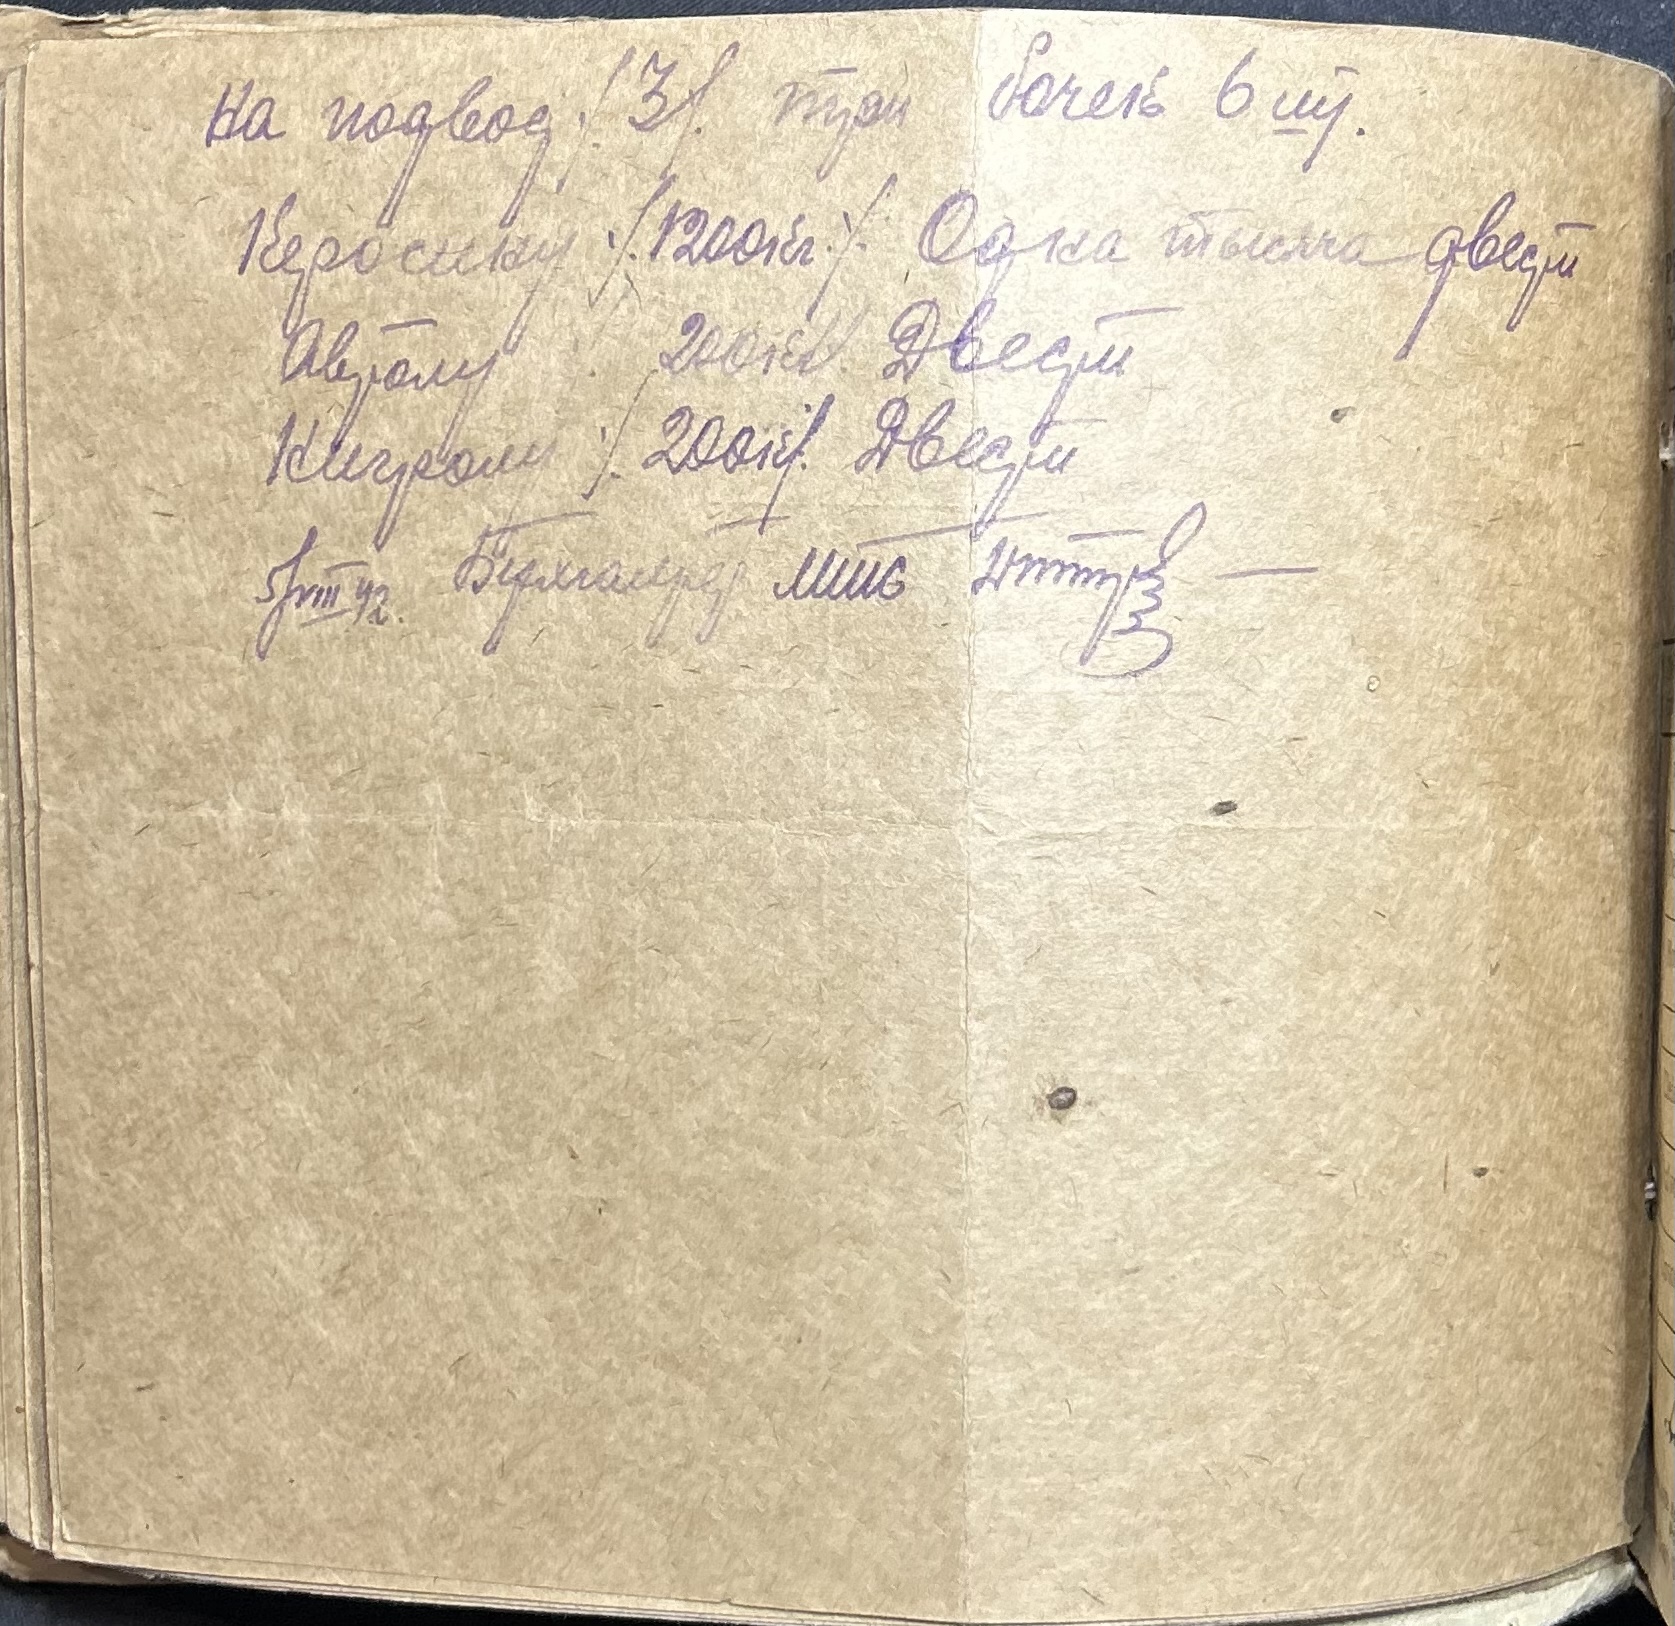 на подвод ./3/. три бочек 6 шт.
Керосину ./.1200кг./. Одна тысяча двести
Автолу / 200кг/. Двести
Нигролу ./. 200кг/. Двести
5/VIII 42. Бухгалтер МТС